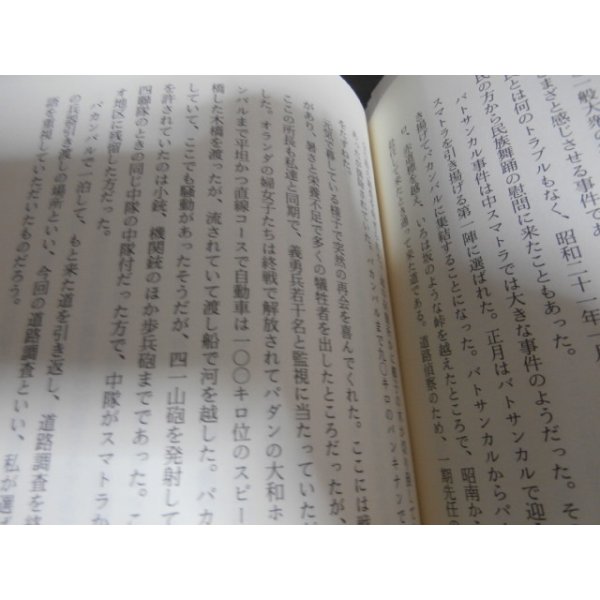 一般大衆の
まざまざと感じさせる事件であ
とは何のトラブルもなく、昭和二十一年一月
民の方から民族舞踊の慰問に来たこともあった。
バトサンカル事件は中スマトラでは大きな事件のようだった。そ
スマトラを引き揚げる第一陣に選ばれた。正月はバトサンカルで迎
き揚げてパカンバルに集結することになった。バトサンカルからパ
り、赤道標を越え、いろは坂のような峠を越えたところで、昭南か
て来た道である。道路偵察のため、一期先任の
パカンバルまで九〇キロのバンキナンで
余儀で暮している様子で突然の再会を喜んでくれた。ここには戦
があり、暑さと栄養不足で多くの犠牲者を出したところだったが、
ここの所長も私達と同期で、義勇兵若干名と監視に当たっていたが
した。オランダの婦女子たちは終戦で解放されてパダンの大和ホ
ンバルまで平坦かつ直線コースで自動車は一〇〇キロ位のスピー
橋した木橋を渡ったが、流されていて渡し船で河を越した。パカ
していて、ここでも騒動があったそうだが、四一山砲を発射して
を許されていたのは小銃、機関銃のほか歩兵砲までであった。こ
四聯隊のときの同じ中隊の中隊付だった方で、中隊がスマトラか
ォ地区に残留した方だった。
パカンバルで一泊して、もと来た道を引き返し、道路調査を終
の兵器引き渡しの場所といい、今回の道路調査といい、私が選
路を重視していただいたものだろう。